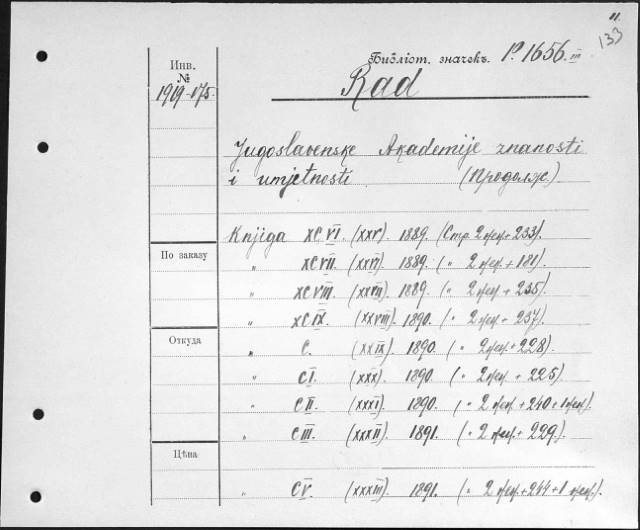 11.
133
Инв.
№
1919-175.
Библіот. значекъ. P. 1656. III
Rad
Jugoslavenske Akademije znanosti
i umjetnosti (Продолж.)
Knjiga XCVI. (XXV). 1889. (Стр. 2 + 233).
" XCVII. (XXVI). 1889. (" 2 + 181).
" XCVIII. (XXVII). 1889. (" 2 + 235).
" XCIX. (XXVIII). 1890. (" 2 + 237).
" C. (XXIX). 1890. (" 2 + 228).
" CI. (XXX). 1890. (" 2 + 225).
" CII. (XXXI). 1890. (" 2 + 240 + 1).
" CIII. (XXXII). 1891. (" 2 + 229).
" CV. (XXXIII). 1891. (" 2 + 244 + 1).
По заказу
Откуда
Цѣна